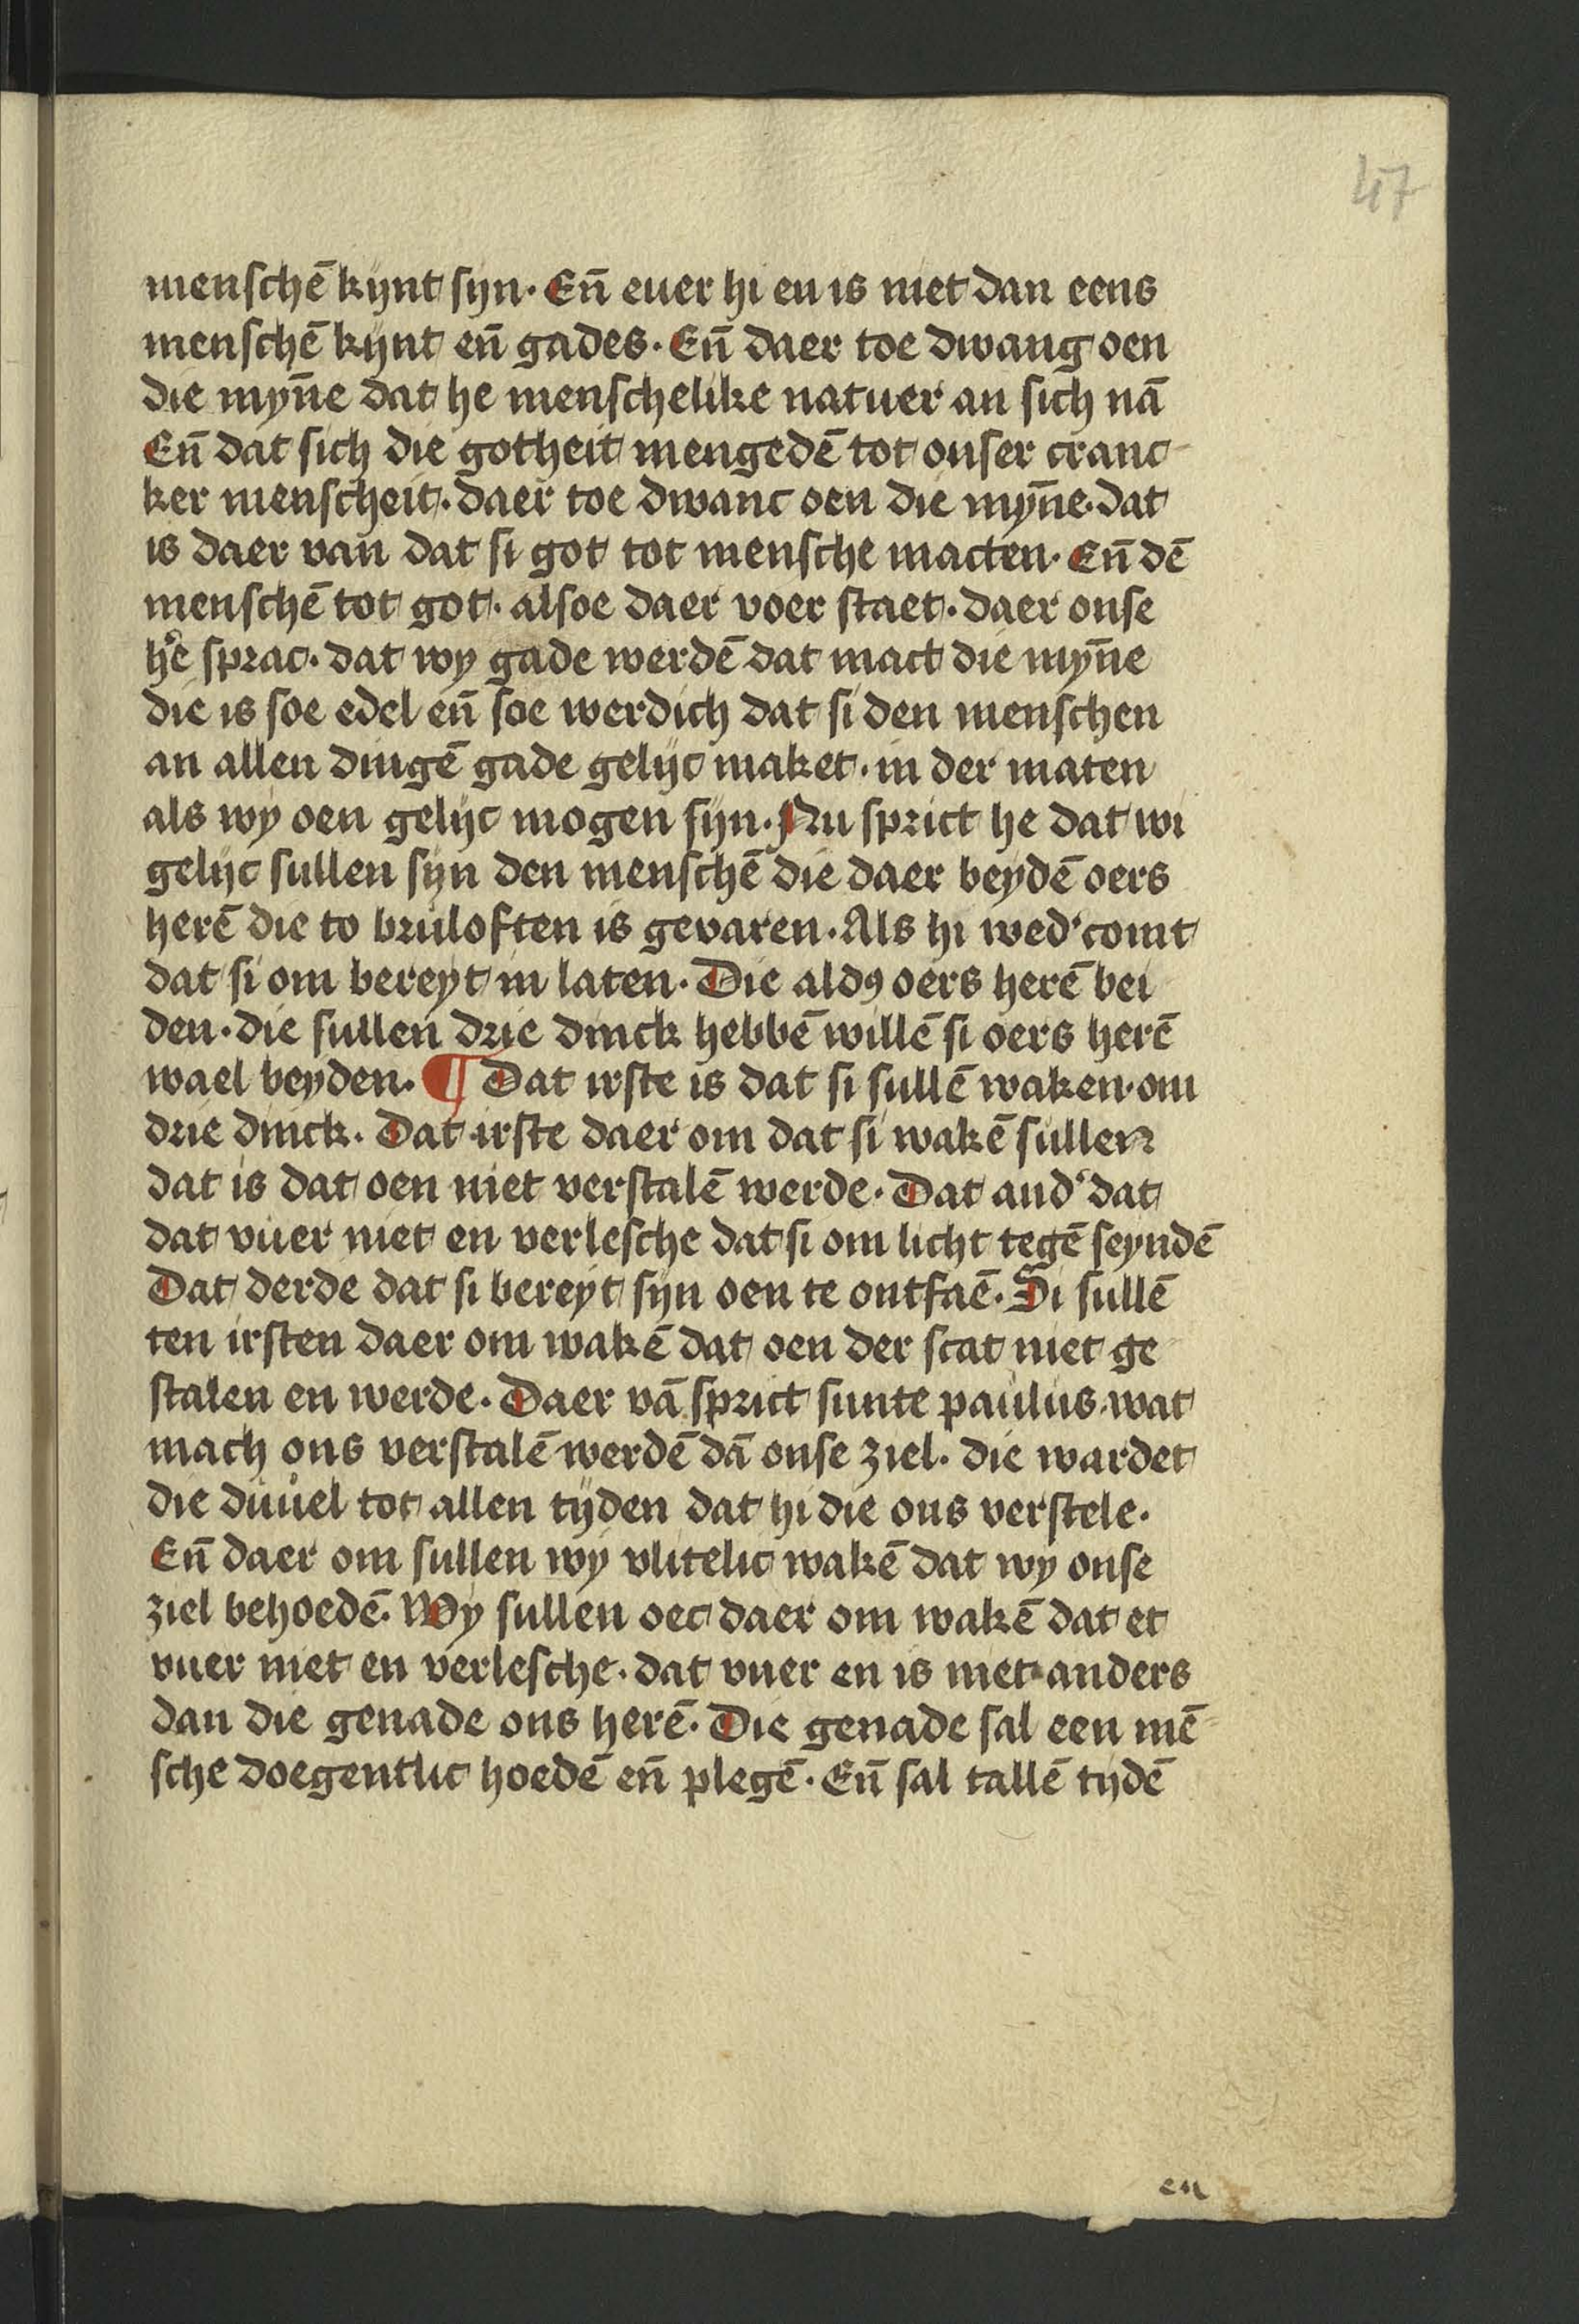 47
menschē kynt syn. Eñ euer hi en is niet dan eens
menschē kynt eñ gades. Eñ daer toe dwang oen
die myn̄e dat he menschelike natuer an sich nā
Eñ dat sich die gotheit mengedē tot onser cranc
ker menscheit. daer toe dwanc oen die myn̄e. dat
is daer van dat si got tot mensche macten. Eñ dē
menschē tot got. alsoe daer voer staet. daer onse
h'e sprac. dat wy gade werdē dat mact die myn̄e
die is soe edel eñ soe werdich dat si den menschen
an allen dingē gade gelijc maket. in der maten
als wy oen gelijc mogen sijn. Nu sprict he dat wi
gelijc sullen sijn den menschē die daer beydē oers
herē die to bruloften is gevaren. Als hi wed' comt
dat si om bereyt in laten. Die aldꝯ oers herē bei
den. die sullen drie dinck hebbē willē si oers herē
wael beyden. ¶ Dat irste is dat si sullē waken. om
drie dinck. Dat irste daer om dat si wakē sullen
dat is dat oen niet verstalē werde. Dat and' dat
dat vuer niet en verlesche dat si om licht tegē seyndē
Dat derde dat si bereyt sijn oen te ontfaē. Si sullē
ten irsten daer om wakē dat oen der scat niet ge
stalen en werde. Daer vā sprict sunte paulus. wat
mach ons verstalē werdē dā onse ziel. die wardet
die duuel tot allen tijden dat hi die ons verstele.
Eñ daer om sullen wy vlitelic wakē dat wy onse
ziel behoedē. Wy sullen oec daer om wakē dat et
vuer niet en verlesche. dat vuer en is niet anders
dan die genade ons herē. Die genade sal een mē
sche doegentlic hoedē eñ plegē. Eñ sal tallē tijdē
en